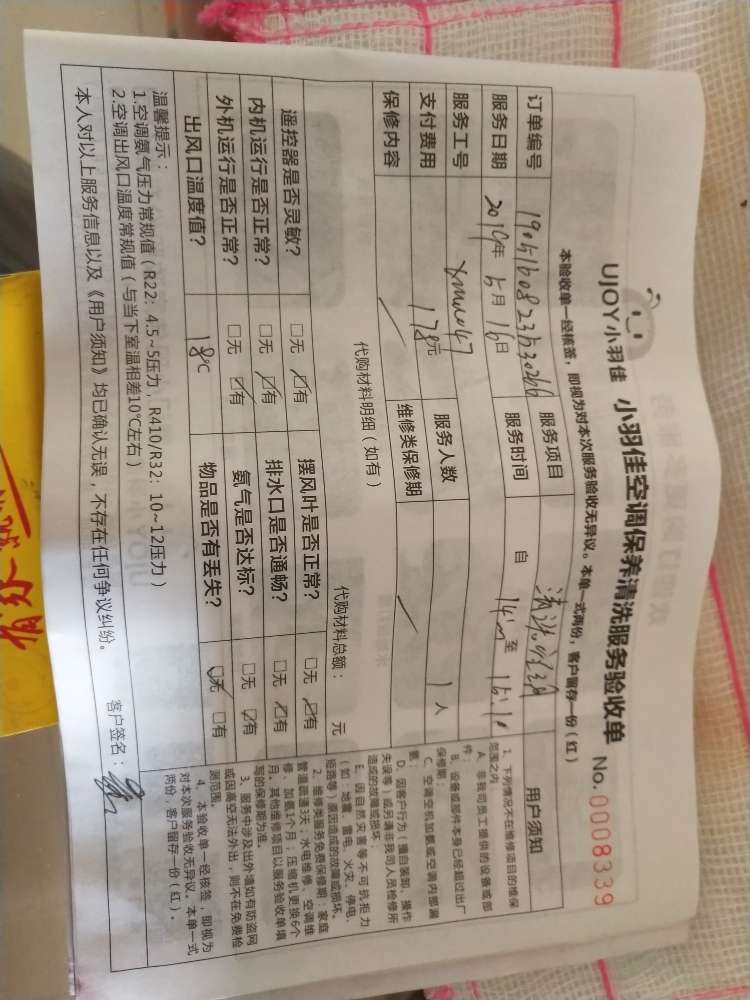 UJOY小羽佳 小羽佳空调保养清洗服务验收单 No.0008339
本验收单一经核签，即视为对本次服务验收无异议。本单一式两份，客户留存一份（红）
订单编号
服务项目
服务日期 2019年 5月 16日 服务时间 自 至
服务工号 服务人数 1人
支付费用 178元 维修类保修期
保修内容
代购材料明细（如有） 代购材料总额： 元
遥控器是否灵敏？ □无 ☑有 摆风叶是否正常？ □无 ☑有
内机运行是否正常？ □无 ☑有 排水口是否通畅？ □无 ☑有
外机运行是否正常？ □无 ☑有 氨气是否达标？ □无 ☑有
出风口温度值？ 18℃ 物品是否有丢失？ ☑无 □有
温馨提示：
1.空调氨气压力常规值（R22：4.5~5压力，R410/R32：10~12压力）
2.空调出风口温度常规值（与当下室温相差10℃左右）
本人对以上服务信息以及《用户须知》均已确认无误，不存在任何争议纠纷。 客户签名：
用户须知
1、下列情况不在维修项目的维保
范围之内
A、非我司员工提供的设备或部
件；
B、设备或部件本身已经超过出厂
保修期；
C、空调空机加氨或空调内部漏
氨；
D、因客户行为（擅自装卸，操作
失误等）或另请非我司人员检修所
造成的故障或损坏；
E、因自然灾害等不可抗拒力
（如：地震、雷电、火灾、停电、
短路等）原因造成的故障或损坏。
2、维修类服务免费保修期：家庭
管道疏通3天；水电维修、空调维
修、加氨1个月；压缩机更换6个
月。其他维修项目以服务验收单填
写的保修期为准。
3、服务中涉及出外墙如有防盗网
或因高空无法外出，则不在免费检
测范围。
4、本验收单一经核签，即视为
对本次服务验收无异议。本单一式
两份，客户留存一份（红）。